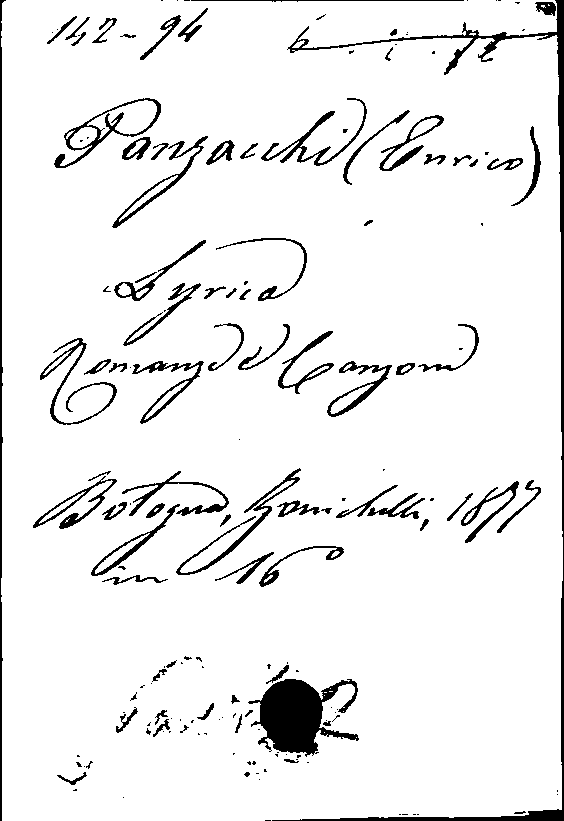 142-94
Panzacchi (Enrico)
Lyrica
Romanze e Canzoni
Bologna, Zanichelli, 1877
in 16°